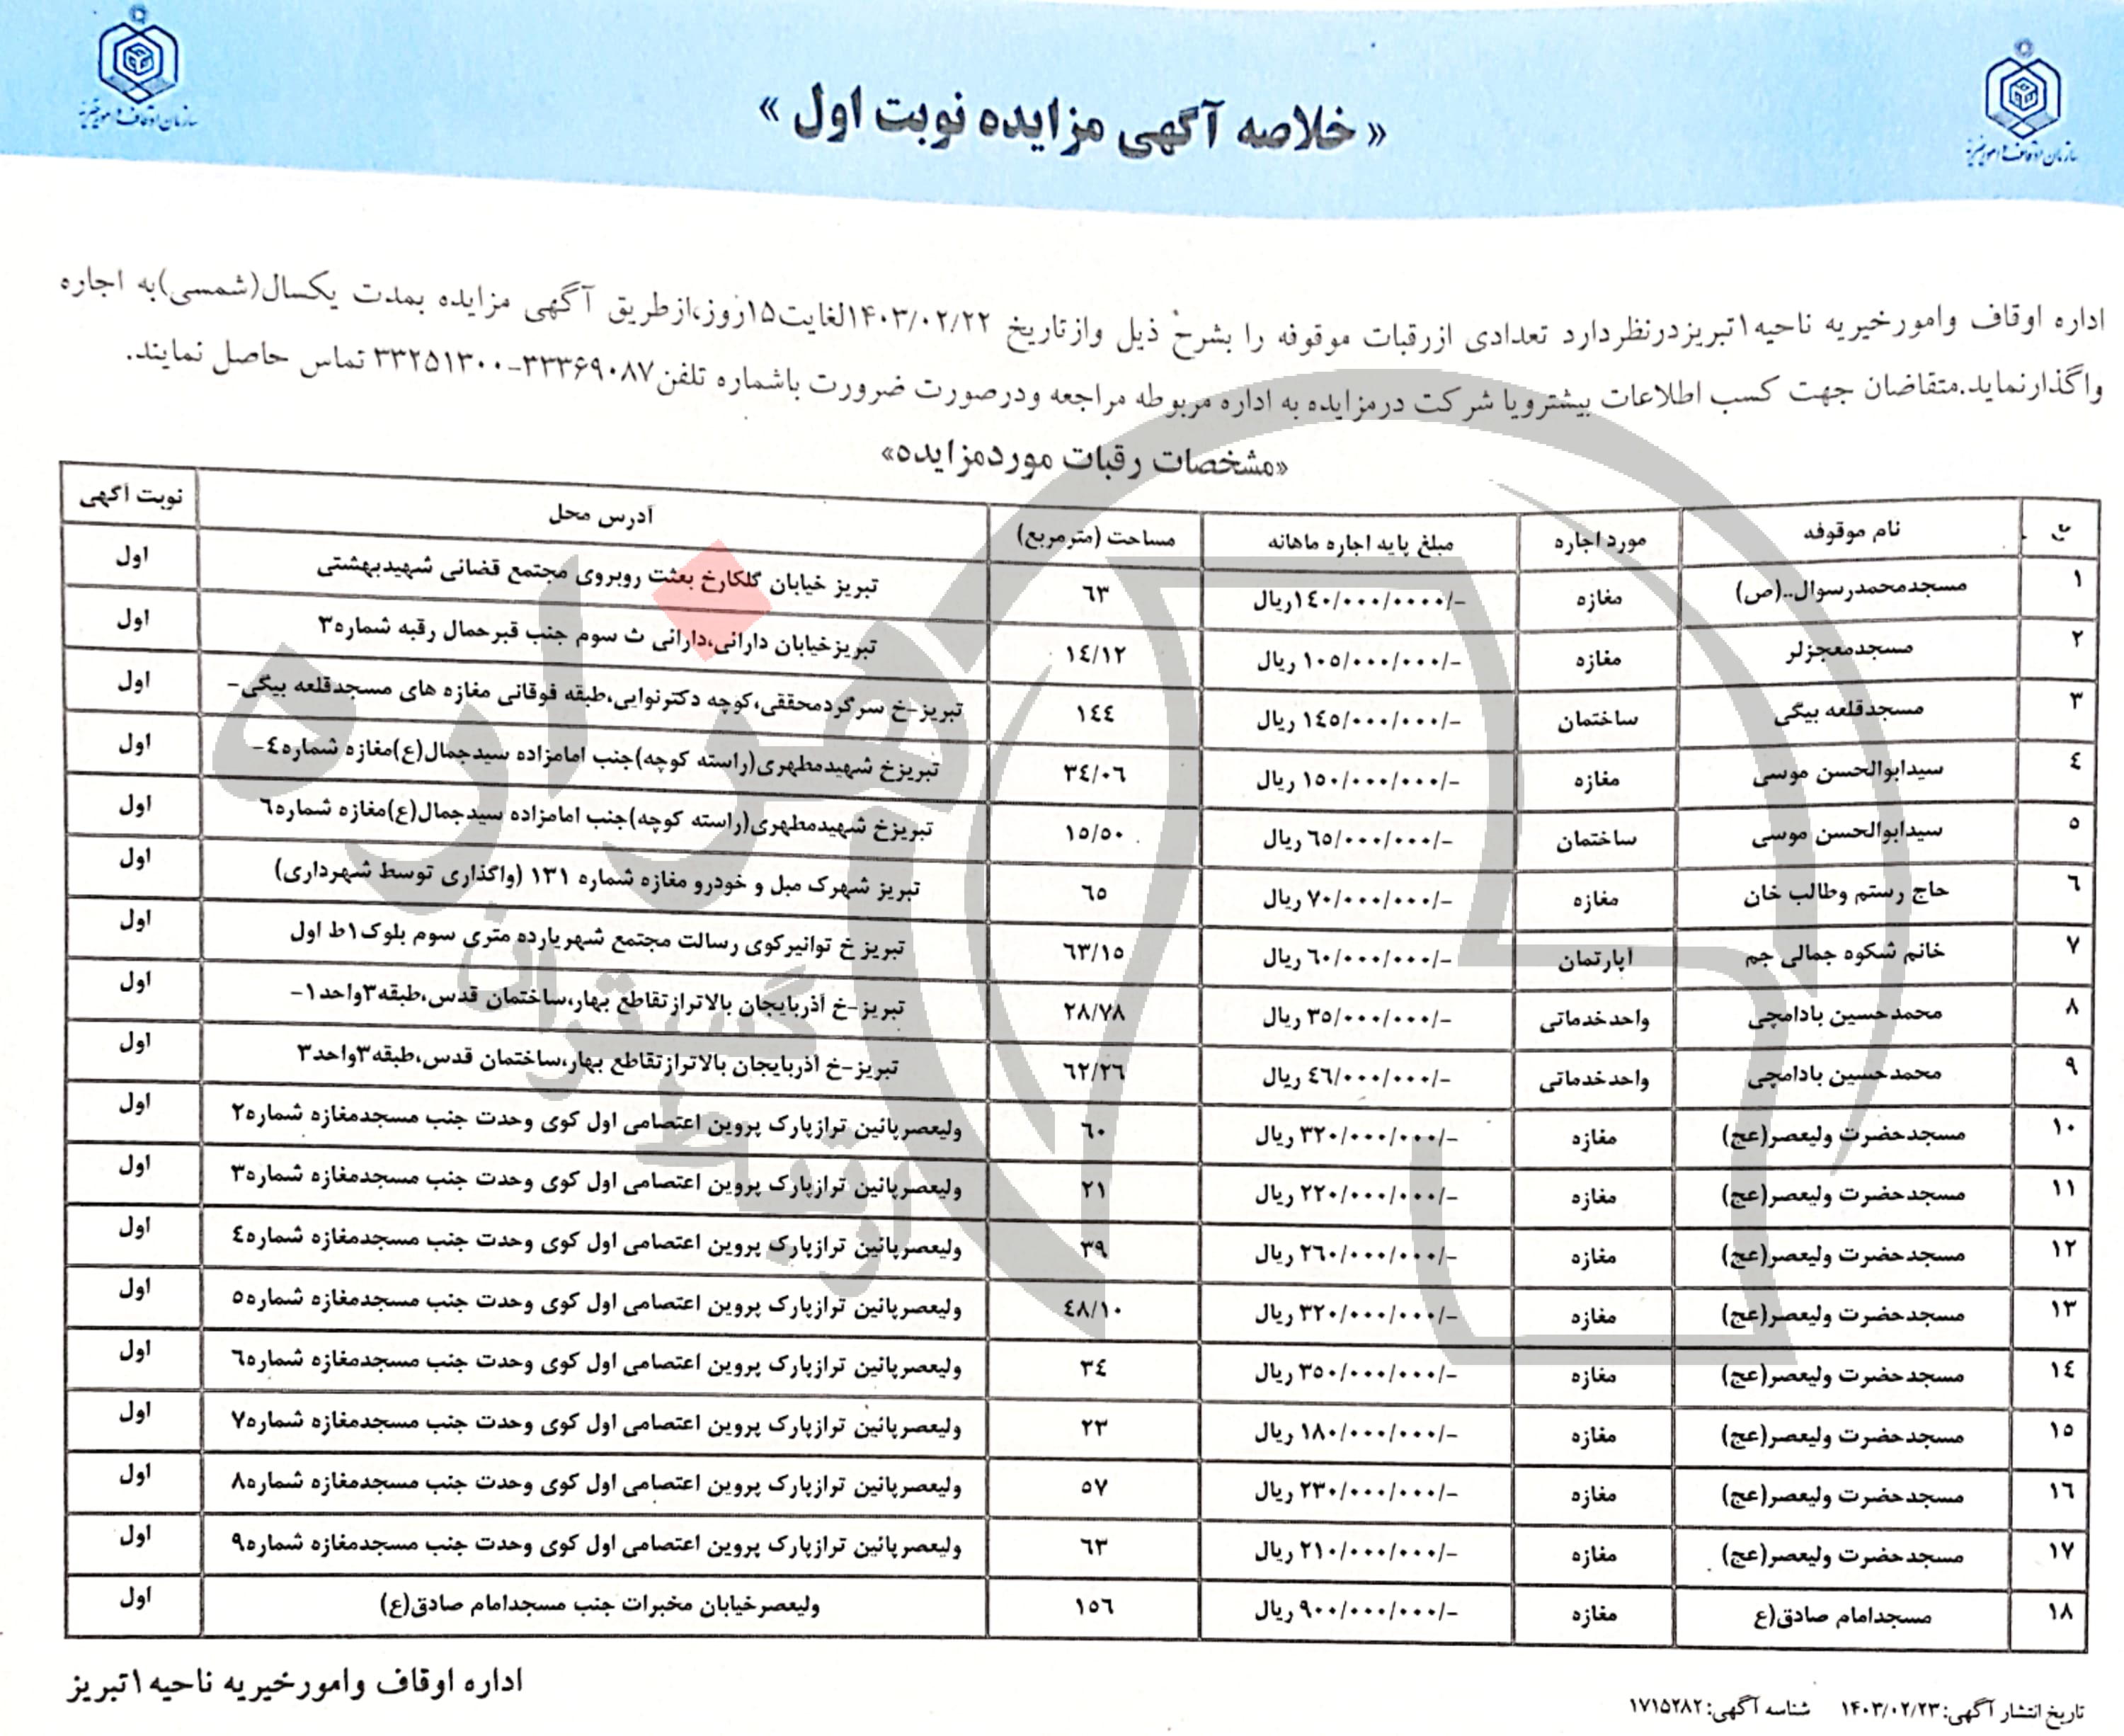 سازمان اوقاف و امور خیریه
سازمان اوقاف و امور خیریه
« خلاصه آگهی مزایده نوبت اول »
اداره اوقاف وامورخیریه ناحیه۱تبریزدرنظردارد تعدادی ازرقبات موقوفه را بشرح ذیل وازتاریخ ۱۴۰۳/۰۲/۲۲لغایت۱۵روز،ازطریق آگهی مزایده بمدت یکسال(شمسی)به اجاره
واگذارنماید.متقاضان جهت کسب اطلاعات بیشترویا شرکت درمزایده به اداره مربوطه مراجعه ودرصورت ضرورت باشماره تلفن۳۳۳۶۹۰۸۷-۳۳۲۵۱۳۰۰ تماس حاصل نمایند.
«مشخصات رقبات موردمزایده»
نام موقوفه مورداجاره مبلغ پایه اجاره ماهانه مساحت (مترمربع) آدرس محل نوبت آگهی
۱ مسجدمحمدرسوال..(ص) مغازه ۱٤۰/۰۰۰/۰۰۰۰/-ریال ٦۳ تبریز خیابان گلکارخ بعثت روبروی مجتمع قضائی شهیدبهشتی اول
۲ مسجدمعجزلر مغازه ۱۰٥/۰۰۰/۰۰۰/- ریال ۱٤/۱۲ تبریزخیابان دارائی،دارائی ث سوم جنب قبرحمال رقبه شماره۳ اول
۳ مسجدقلعه بیگی ساختمان ۱٤٥/۰۰۰/۰۰۰/- ریال ۱٤٤ تبریز-خ سرگردمحققی،کوچه دکترنوایی،طبقه فوقانی مغازه های مسجدقلعه بیگی- اول
٤ سیدابوالحسن موسی مغازه ۱٥۰/۰۰۰/۰۰۰/- ریال ۳٤/۰٦ تبریزخ شهیدمطهری(راسته کوچه)جنب امامزاده سیدجمال(ع)مغازه شماره٤- اول
٥ سیدابوالحسن موسی ساختمان ٦٥/۰۰۰/۰۰۰/- ریال ۱٥/٥۰ تبریزخ شهیدمطهری(راسته کوچه)جنب امامزاده سیدجمال(ع)مغازه شماره٦ اول
٦ حاج رستم وطالب خان مغازه ۷۰/۰۰۰/۰۰۰/- ریال ٦٥ تبریز شهرک مبل و خودرو مغازه شماره ۱۳۱ (واگذاری توسط شهرداری) اول
۷ خانم شکوه جمالی جم آپارتمان ٦۰/۰۰۰/۰۰۰/- ریال ٦۳/۱٥ تبریز خ توانیرکوی رسالت مجتمع شهریارده متری سوم بلوک۱ط اول اول
۸ محمدحسین بادامچی واحدخدماتی ۳٥/۰۰۰/۰۰۰/- ریال ۲۸/۷۸ تبریز-خ آذربایجان بالاترازتقاطع بهار،ساختمان قدس،طبقه۳واحد۱- اول
۹ محمدحسین بادامچی واحدخدماتی ٤٦/۰۰۰/۰۰۰/- ریال ٦۲/۲٦ تبریز-خ آذربایجان بالاترازتقاطع بهار،ساختمان قدس،طبقه۳واحد۳ اول
۱۰ مسجدحضرت ولیعصر(عج) مغازه ۳۲۰/۰۰۰/۰۰۰/- ریال ٦۰ ولیعصرپائین ترازپارک پروین اعتصامی اول کوی وحدت جنب مسجدمغازه شماره۲ اول
۱۱ مسجدحضرت ولیعصر(عج) مغازه ۲۲۰/۰۰۰/۰۰۰/- ریال ۲۱ ولیعصرپائین ترازپارک پروین اعتصامی اول کوی وحدت جنب مسجدمغازه شماره۳ اول
۱۲ مسجدحضرت ولیعصر(عج) مغازه ۲٦۰/۰۰۰/۰۰۰/- ریال ۳۹ ولیعصرپائین ترازپارک پروین اعتصامی اول کوی وحدت جنب مسجدمغازه شماره٤ اول
۱۳ مسجدحضرت ولیعصر(عج) مغازه ۳۲۰/۰۰۰/۰۰۰/- ریال ٤۸/۱۰ ولیعصرپائین ترازپارک پروین اعتصامی اول کوی وحدت جنب مسجدمغازه شماره٥ اول
۱٤ مسجدحضرت ولیعصر(عج) مغازه ۳٥۰/۰۰۰/۰۰۰/- ریال ۳٤ ولیعصرپائین ترازپارک پروین اعتصامی اول کوی وحدت جنب مسجدمغازه شماره٦ اول
۱٥ مسجدحضرت ولیعصر(عج) مغازه ۱۸۰/۰۰۰/۰۰۰/- ریال ۲۳ ولیعصرپائین ترازپارک پروین اعتصامی اول کوی وحدت جنب مسجدمغازه شماره۷ اول
۱٦ مسجدحضرت ولیعصر(عج) مغازه ۲۳۰/۰۰۰/۰۰۰/- ریال ٥۷ ولیعصرپائین ترازپارک پروین اعتصامی اول کوی وحدت جنب مسجدمغازه شماره۸ اول
۱۷ مسجدحضرت ولیعصر(عج) مغازه ۲۱۰/۰۰۰/۰۰۰/- ریال ٦۳ ولیعصرپائین ترازپارک پروین اعتصامی اول کوی وحدت جنب مسجدمغازه شماره۹ اول
۱۸ مسجدامام صادق(ع مغازه ۹۰۰/۰۰۰/۰۰۰/- ریال ۱٥٦ ولیعصرخیابان مخبرات جنب مسجدامام صادق(ع) اول
اداره اوقاف وامورخیریه ناحیه۱تبریز
تاریخ انتشار آگهی: ۱۴۰۳/۰۲/۲۳ شناسه آگهی: ۱۷۱۵۲۸۲